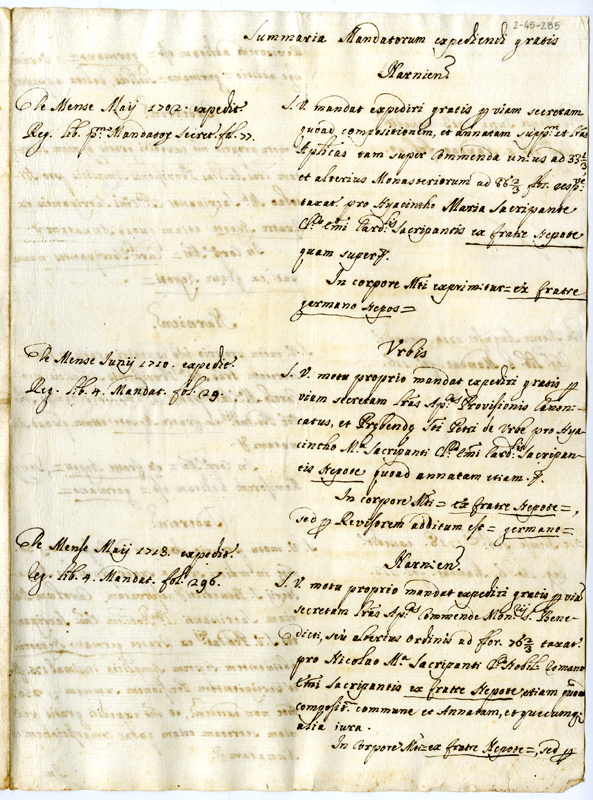 2-45-285
Summaria Mandatorum expediendi gratis
Narnien.
De Mense Maij 1702. expedit.
Reg. lib. pmo Mandator Secret. fol. 77.
S. V. mandat expediri gratis p viam secretam
quoad compositionem, et annatam supp.m et lras
Aplicas tam super Commenda unius ad 33 1/3
et alterius Monasteriorum ad 66 2/3 flor. resp.ve
taxat. pro Hyacintho Maria Sacripante
Emi Card.lis Sacripantis ex fratre Nepote
quam super
In corpore Mti exprimitur = ex fratre
germano Nepos =
Urbis
De Mense Junij 1710. expedit.
Reg. lib. 4. Mandat. fol. 29.
S. V. motu proprio mandat expediri gratis p
viam secretam lras Ap.cas Provisionis Canoni-
catus, et Prębendę Sti Petri de Urbe pro Hya-
cintho M.a Sacripanti Emi Card.lis Sacripan-
tis Nepote quoad annatam etiam
In corpore Mti = ex fratre Nepote =,
sed p Revisorem additum est = germano =
Narnien.
De Mense Maij 1718. expedit.
Reg. lib. 4. Mandat. fol. 296.
S. V. motu proprio mandat expediri gratis p viã
secretam lras Ap.cas Commende Mon.rij S. Bene-
dicti, seu alterius ordinis ad flor. 76 2/3 taxat.
pro Nicolao M.a Sacripanti Nobili Romano
Emi Sacripantis ex fratre Nepote etiam quoad
composit. commune et Annatam, et quęcumq
alia iura.
In corpore Mti = ex fratre Nepote =, sed p